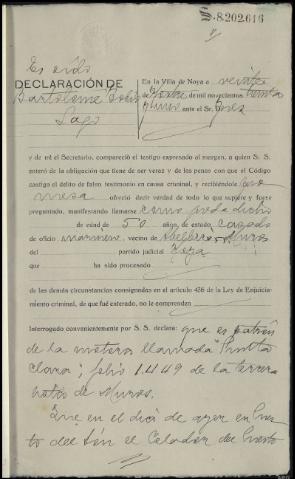 8.202.616
Es oído
DECLARACIÓN DE
Bartolomé
Lago
En la Villa de Noya a veinte
de de mil novecientos treinta
ante el Sr. Juez
y de mí el Secretario, compareció el testigo expresado al margen, a quien S. S.
enteró de la obligación que tiene de ser veraz y de las penas con que el Código
castiga el delito de falso testimonio en causa criminal, y recibiéndole pro
mesa ofreció decir verdad de todo lo que supiere y fuere
preguntado, manifestando llamarse como queda dicho
de edad de 50 años, de estado casado
de oficio marinero, vecino de Muros
partido judicial
que ha sido procesado
de las demás circunstancias consignadas en el artículo 436 de la Ley de Enjuicia-
miento criminal, de que fué enterado, no le comprenden
Interrogado convenientemente por S. S. declara: que es patrón
de la motora llamada "Punta
Clara", folio 1.449 de la
de Muros.
Que en el día de ayer en Puer
to del Són el Celador del Puerto